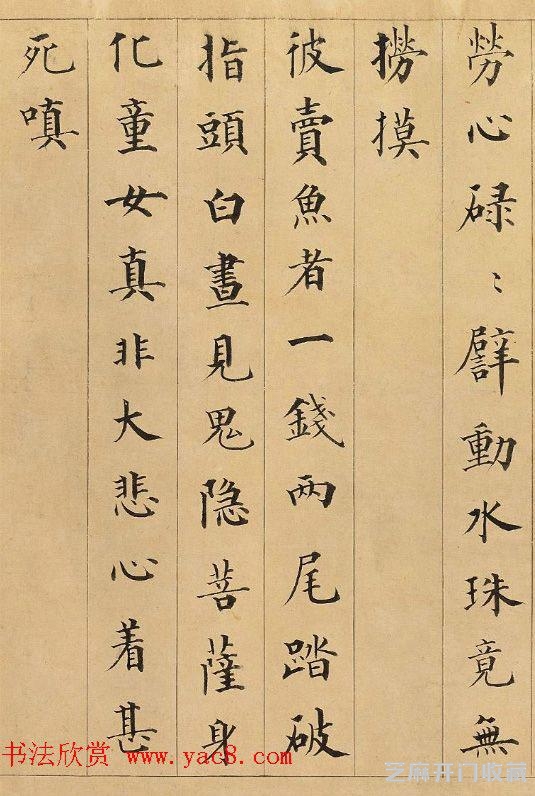 勞心碌〻譬動水珠竟無
撈摸
彼賣魚者一錢两尾踏破
指頭白晝見鬼隐菩薩身
化童女真非大悲心着甚
死嗔
书法欣赏 www.yac8.com
芝麻开门收藏